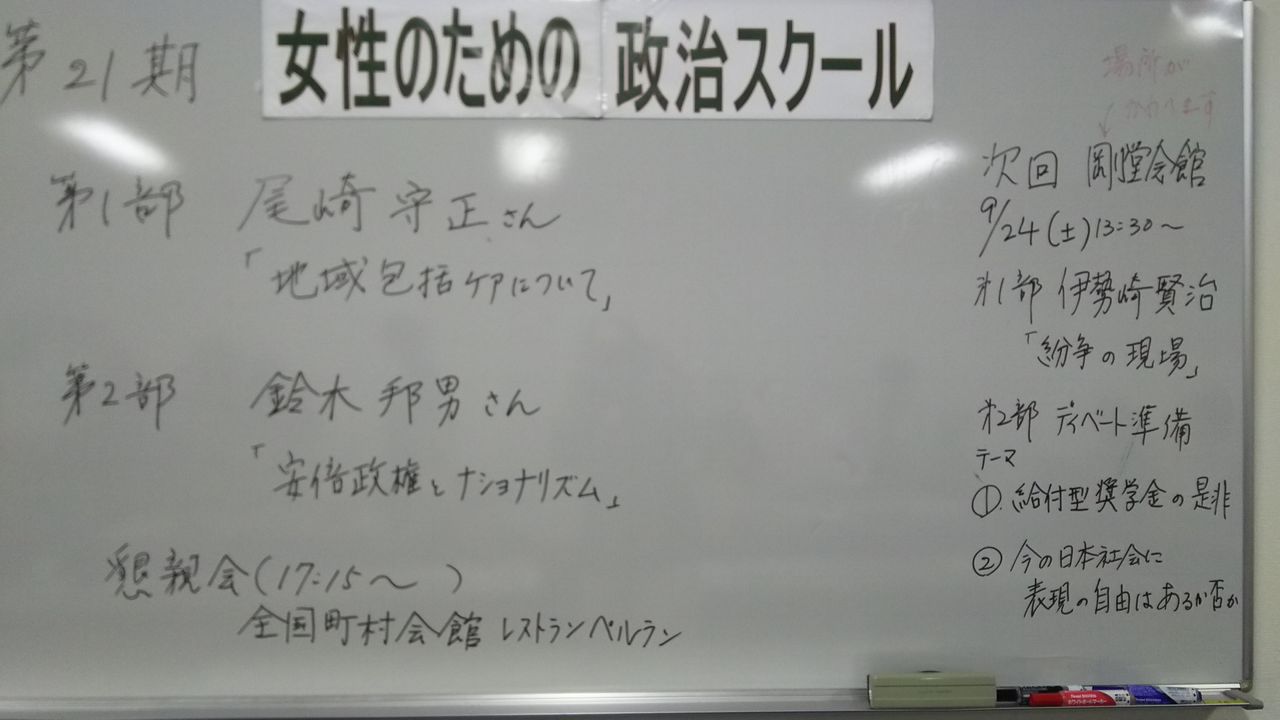 第21期
女性のための 政治スクール
第1部 尾崎守正さん
「地域包括ケアについて」
第2部 鈴木邦男さん
「安倍政権とナショナリズム」
懇親会(17:15〜 )
全国町村会館 レストランペルラン
場所が
かわります
次回 剛堂会館
9/24(土)13:30〜
第1部 伊勢崎賢治
「紛争の現場」
第2部 ディベート準備
テーマ
① 給付型奨学金の是非
② 今の日本社会に
表現の自由はあるか否か